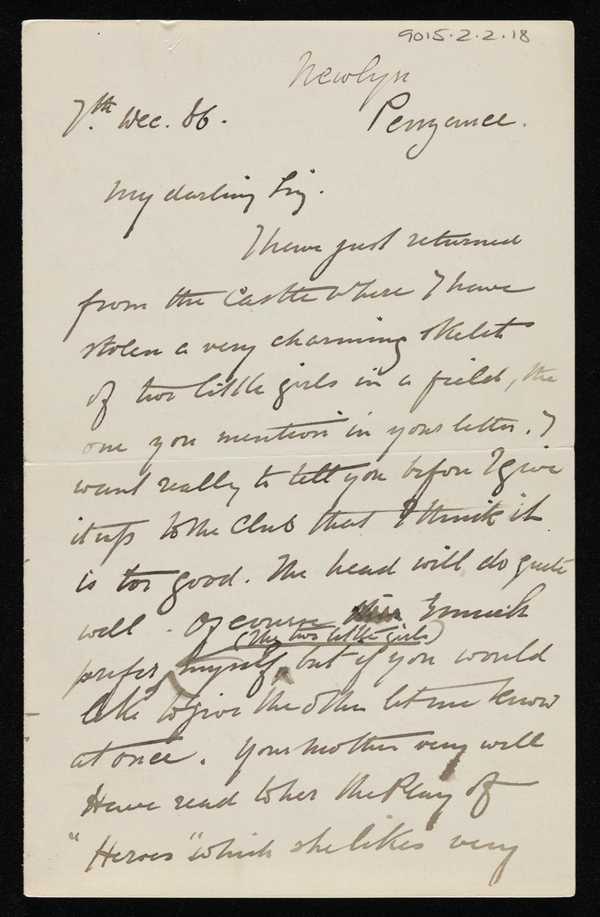 9015.2.2.18
Newlyn
7th Dec. 86. Penzance.
My darling Liz.
I have just returned
from the Castle where I have
stolen a very charming sketch
of two little girls in a field, the
one you mention in your letter. I
want really to tell you before I give
it up to the Club that I think it
is too good. The head will do quite
well. Of course I much
(The two little girls)
prefer myself, but if you would
like to give the other let me know
at once. Your mother very well
Have read to her the Play of
"Heroes" which she likes very